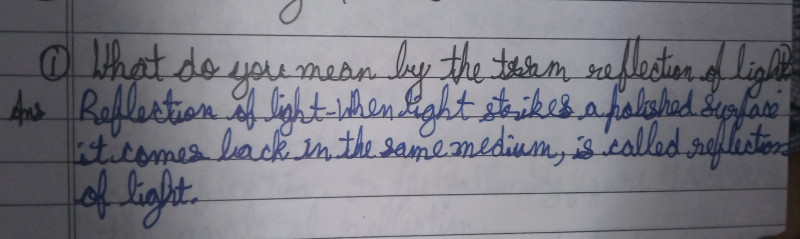 ① What do you mean by the team reflection of light?
Ans Reflection of light-When light strikes a polished surface
it comes back in the same medium, is called reflection
of light.